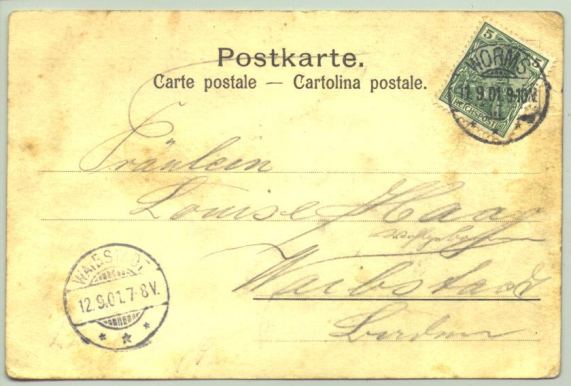 Postkarte.
Carte postale — Cartolina postale.
5 5
REICHSPOST
WORMS
11.9.01.9-10N.
Fräulein
Louise Haag
Waibstadt
Baden
WAIBSTADT
12.9.01.7-8V.